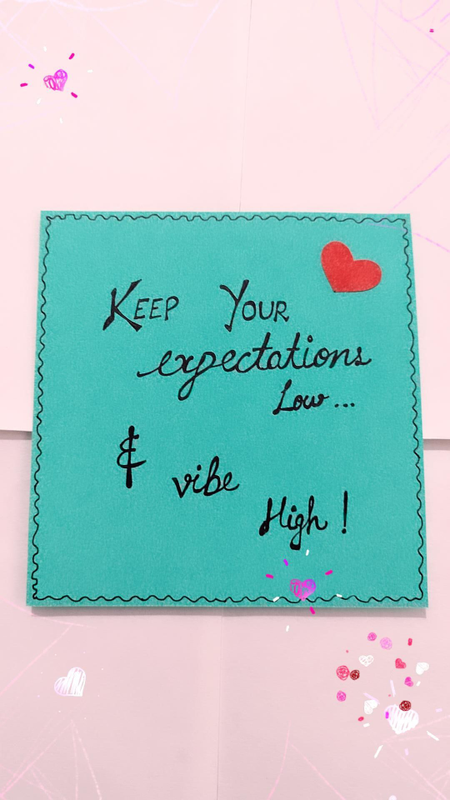 Keep Your
expectations
Low...
&
vibe
High!